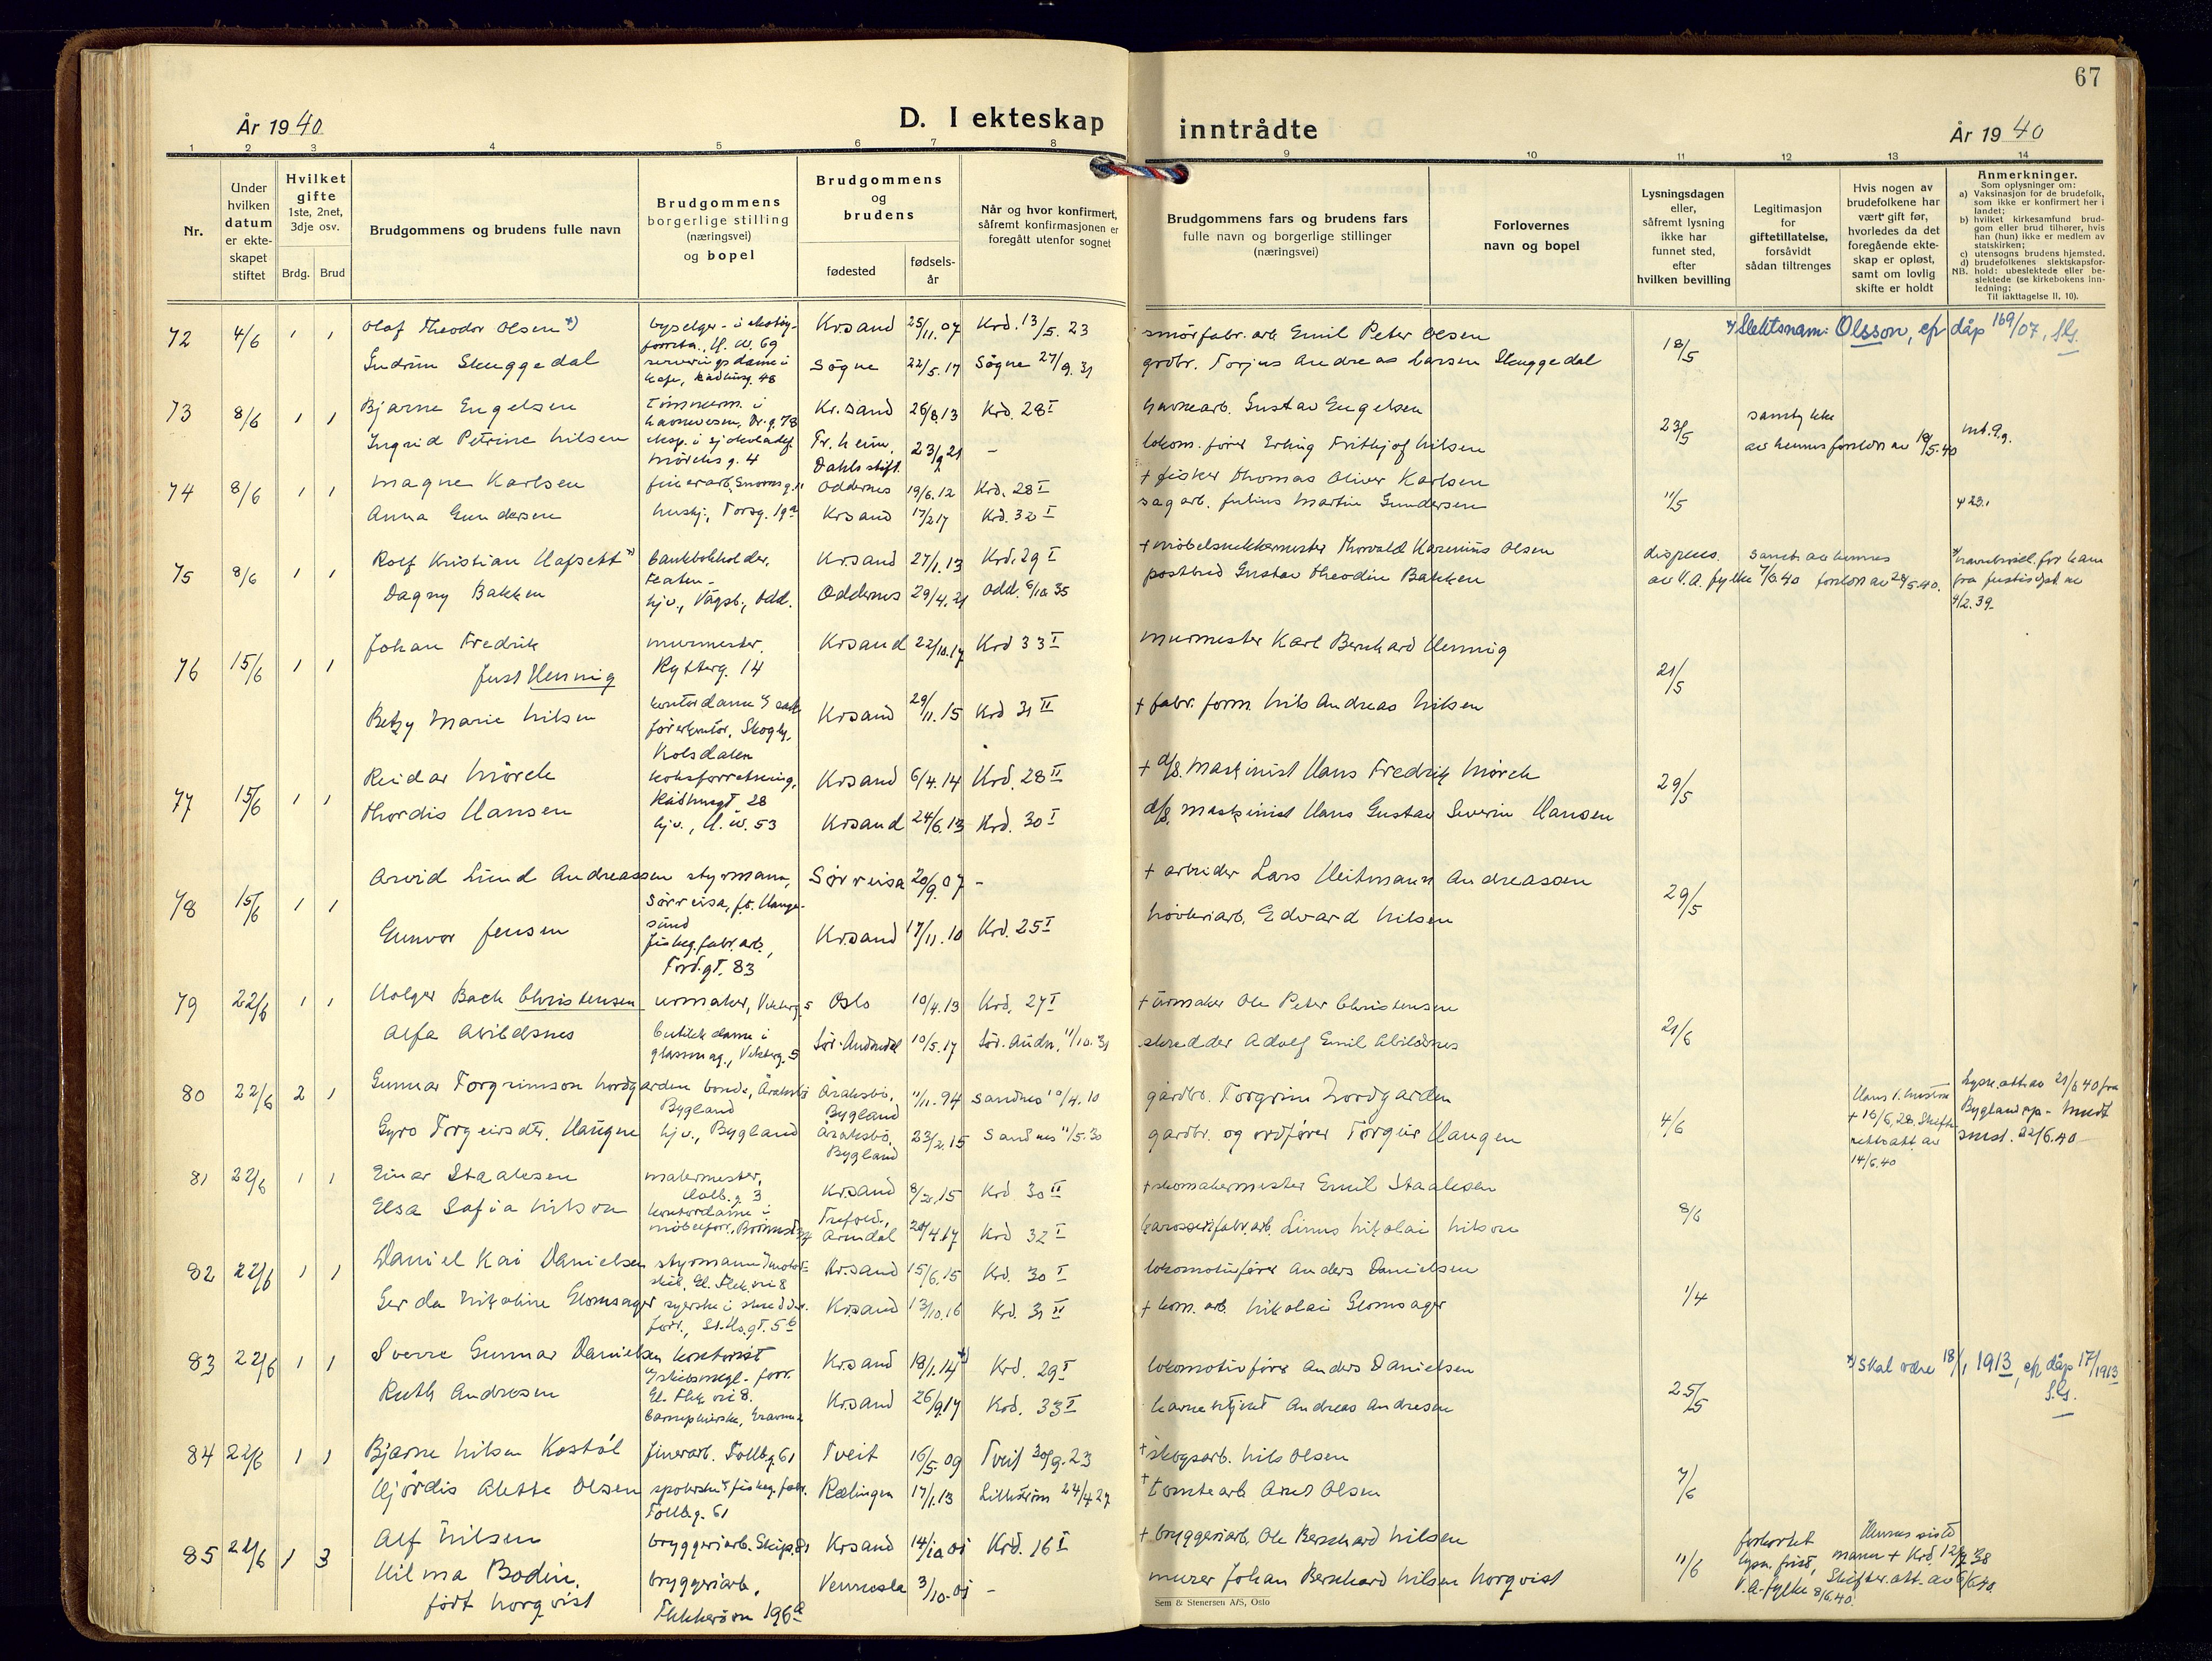 67
År 1940
D. I ekteskap inntrådte
År 1940
1 2 3 4 5 6 7 8 9 10 11 12 13 14
Nr.
Under hvilken datum er ekteskapet stiftet
Hvilket gifte 1ste, 2net, 3dje osv.
Brdg. Brud
Brudgommens og brudens fulle navn
Brudgommens borgerlige stilling (næringsvei) og bopel
Brudgommens og brudens
fødested
fødselsår
Når og hvor konfirmert, såfremt konfirmasjonen er foregått utenfor sognet
Brudgommens fars og brudens fars fulle navn og borgerlige stillinger (næringsvei)
Forlovernes navn og bopel
Lysningsdagen eller, såfremt lysning ikke har funnet sted, efter hvilken bevilling
Legitimasjon for giftetillatelse, forsåvidt sådan tiltrenges
Hvis nogen av brudefolkene har vært gift før, hvorledes da det foregående ekteskap er opløst, samt om lovlig skifte er holdt
Anmerkninger.
Som oplysninger om:
a) Vaksinasjon for de brudefolk, som ikke er konfirmert her i landet;
b) hvilket kirkesamfund brudgom eller brud tilhører, hvis han (hun) ikke er medlem av statskirken;
c) utensogns brudens hjemsted.
d) brudefolkenes slektskapsforhold: ubeslektede eller beslektede (se kirkebokens innledning;
NB. Til iakttagelse II, 10).
72 4/6 1 1 Olof Theodor Olsen x) Kr.sand 25/11.07 Krd. 13/5. 23 smørfabr.arb. Emil Peter Olsen 18/5 x) Slektsnam: Olsson, efr dåp 169/07, S.G.
Gudrun Skuggedal Søgne 22/5.17 Søgne 27/9.31 grdbr. Torjus Andreas Larsen Skuggedal
73 8/6 1 1 Bjarne Engelsen tømmerm. i Kr.sand 26/8.13 Krd. 28 I havnearb. Gustav Engelsen 23/5 samtykke
Ingrid Petrine Nilsen Tr.heim, 23/9 21 – lokom.fører Erling Frithjof Nilsen av hennes foreldre av 18/5.40
Dahls stift.
74 8/6 1 1 Magne Karlsen Oddernes 19/6.12 Krd. 28 I + fisker Thomas Oliver Karlsen 11/5
Anna Gundersen hushj., Torsg. 19a Kr.sand 17/2 17 Krd. 32 I sagarb. Julius Martin Gundersen
75 8/6 1 1 Rolf Kristian Hafsett x) bankbokholder, Kr.sand 27/1.13 Krd. 29 I + møbelsnekkermester Thorvald Karenius Olsen dispens. samt. av hennes
Dagny Bakken hjv., Vågsb., Odd. Oddernes 29/4.21 Odd. 6/10 35 postbud Gustav Theodin Bakken av V.A. fylke 7/6.40 foreldre av 28/5.40.
4/2.39
76 15/6 1 1 Johan Fredrik murmester. Kr.sand 22/10.17 Krd 33 I murmester Karl Bernhard Hennig 21/5
Just Hennig Rytterg. 14
Betzy Marie Nilsen Kr.sand 29/11.15 Krd 31 II + fabr. form. Nils Andreas Nilsen
Kolsdalen
77 15/6 1 1 Reidar Mørch koksforretning, Kr.sand 6/4.14 Krd. 28 II + d/s. maskinist Hans Fredrik Mørch 29/5
Rådhusgt. 28
Thordis Hansen hjv., H.W. 53 Kr.sand 24/6.13 Krd. 30 I d/s. maskinist Hans Gustav Severin Hansen
78 15/6 1 1 Arvid Lund Andreassen styrmann, Sørreisa 20/9.07 – + arbeider Lars Heitmann Andreassen 29/5
Sørreisa, f.t. Haugesund
Gunvor Jensen fiskeg.fabr.arb., Kr.sand 17/11.10 Krd. 25 I høvleriarb. Edvard Nilsen
Tord.gt. 83
79 22/6 1 1 Holger Bach Christensen urmaker, Vesterg. 5 Oslo 10/4.13 Krd. 27 I + urmaker Ole Peter Christensen 21/6
Alfa Abildsnes butikkdame i glassmag., Vesterg. 5 Sør-Audnedal 10/5.17 Sør-Audn. 11/10.31 skredder Adolf Emil Abildsnes
80 22/6 2 1 Gunnar Torgrimson Nordgarden bonde, Åraksbø Bygland Åraksbø, Bygland 11/11.94 Sandnes 10/4.10 gårdbr. Torgrim Nordgarden 4/6 Hans 1. hustru + 16/6.28. Skifterettsatt. av 14/6.40 lysn.att. av 21/6 40 fra Bygland
Gyro Torgeirsdtr. Haugen hjv., Bygland Åraksbø, Bygland 23/2.15 Sandnes 11/5.30 gardbr. og ordfører Torgeir Haugen
81 22/6 1 1 Einar Staalesen malermester, Holb.g. 3 Kr.sand 8/3.15 Krd 30 II + skomakermester Emil Staalesen 8/6
Elsa Sofia Nilson kontordame i Arendal 20/4.17 Krd 32 I karosserifabr.arb. Linus Nikolai Nilson
82 22/6 1 1 Daniel Kai Danielsen styrmann Kr.sand 15/6.15 Krd. 30 I lokomotivfører Anders Danielsen 1/4
Gerda Nikoline Glomsager syerske i skredder- Kr.sand 13/10.16 Krd. 31 II + kom. arb. Nikolai Glomsager
83 22/6 1 1 Sverre Gunnar Danielsen kontorist Kr.sand 18/1.14 x) Krd. 29 I lokomotivfører Anders Danielsen 25/5 x) skal være 18/1 1913, efr dåp 17/1913 S.G.
Ruth Andresen Kr.sand 26/9.17 Krd. 33 I havnebetjent Andreas Andresen
84 22/6 1 1 Bjarne Nilsen Kostøl finerarb. Tollbg. 61 Tveit 16/5.09 Tveit 30/9.23 + skogsarb. Nils Olsen 7/6
Hjørdis Alette Olsen Tollbg. 61 Rælingen 17/1.13 Lillestrøm 24/4 27 + tomtearb. Arnt Olsen
85 22/6 1 3 Alf Nilsen bryggeriarb. Kr.sand 14/10 01 Krd. 16 I + bryggeriarb. Ole Bernhard Nilsen 11/6 forkortet lysn.frist, V.A. fylke 8/6.40. Hennes siste mann + Krd. Skifter.att. av
Hilma Bodin, født Norqvist bryggeriarb. Flekkerøvn 196a Vennesla 3/10.01 – murer Johan Bernhard Nilsen Norqvist
Sem & Stenersen A/S, Oslo